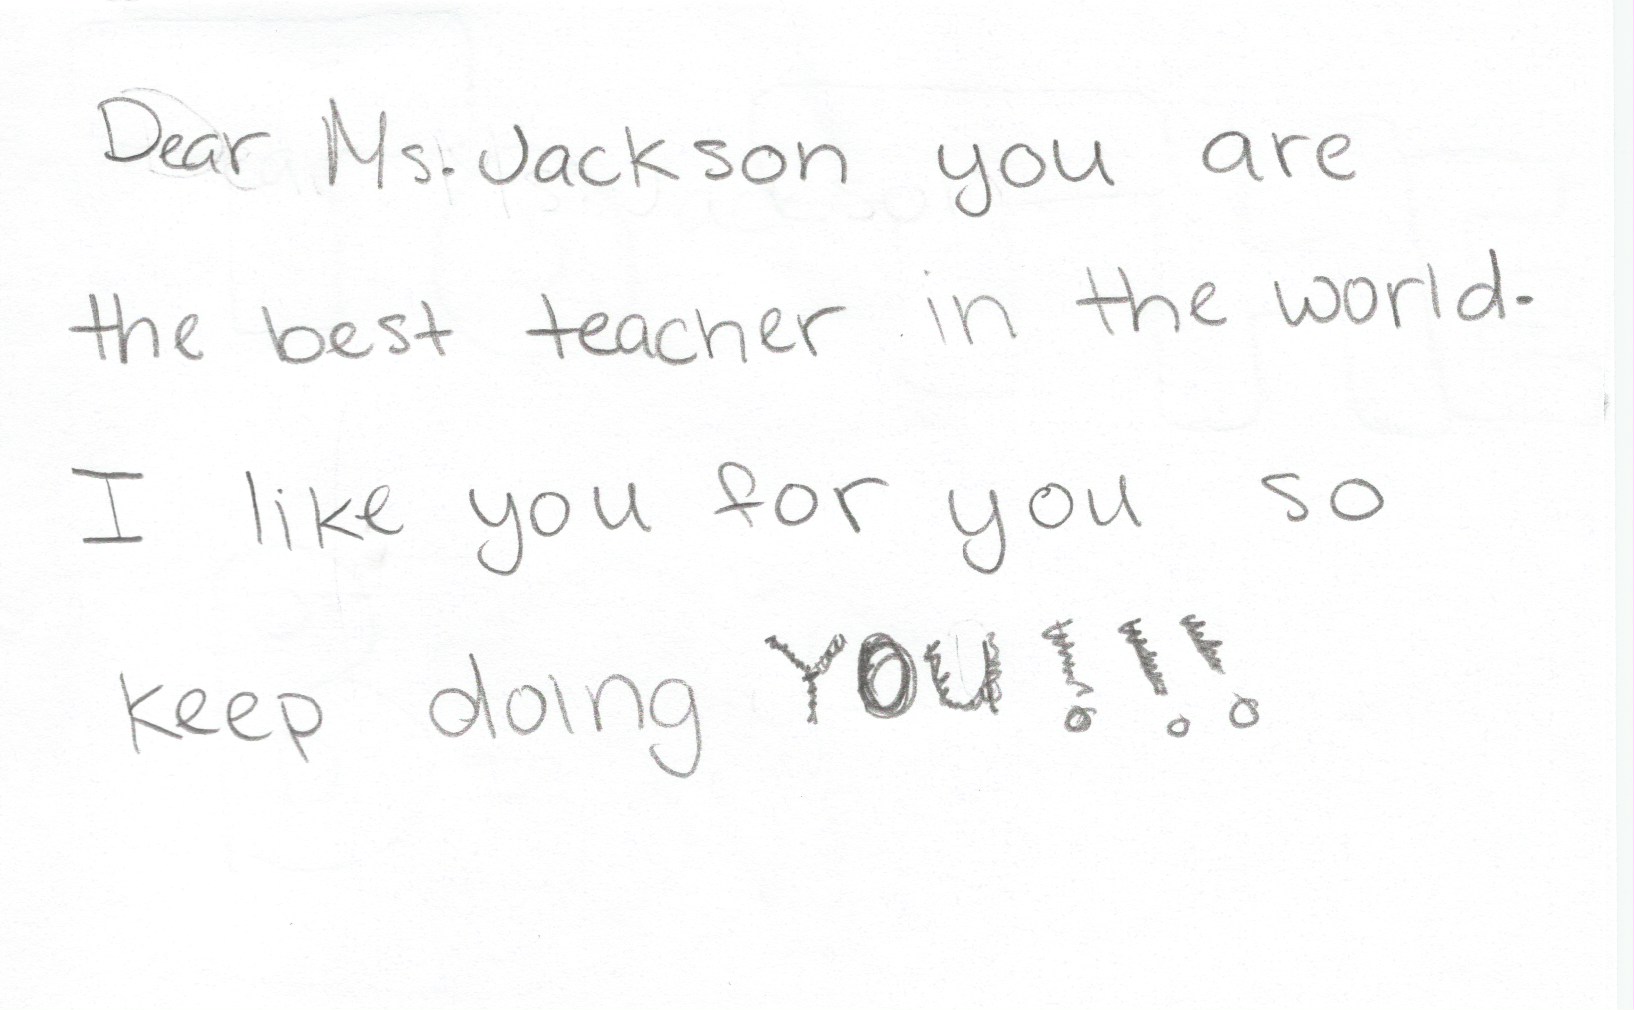 Dear Ms. Jackson you are
the best teacher in the world.
I like you for you so
keep doing YOU!!!